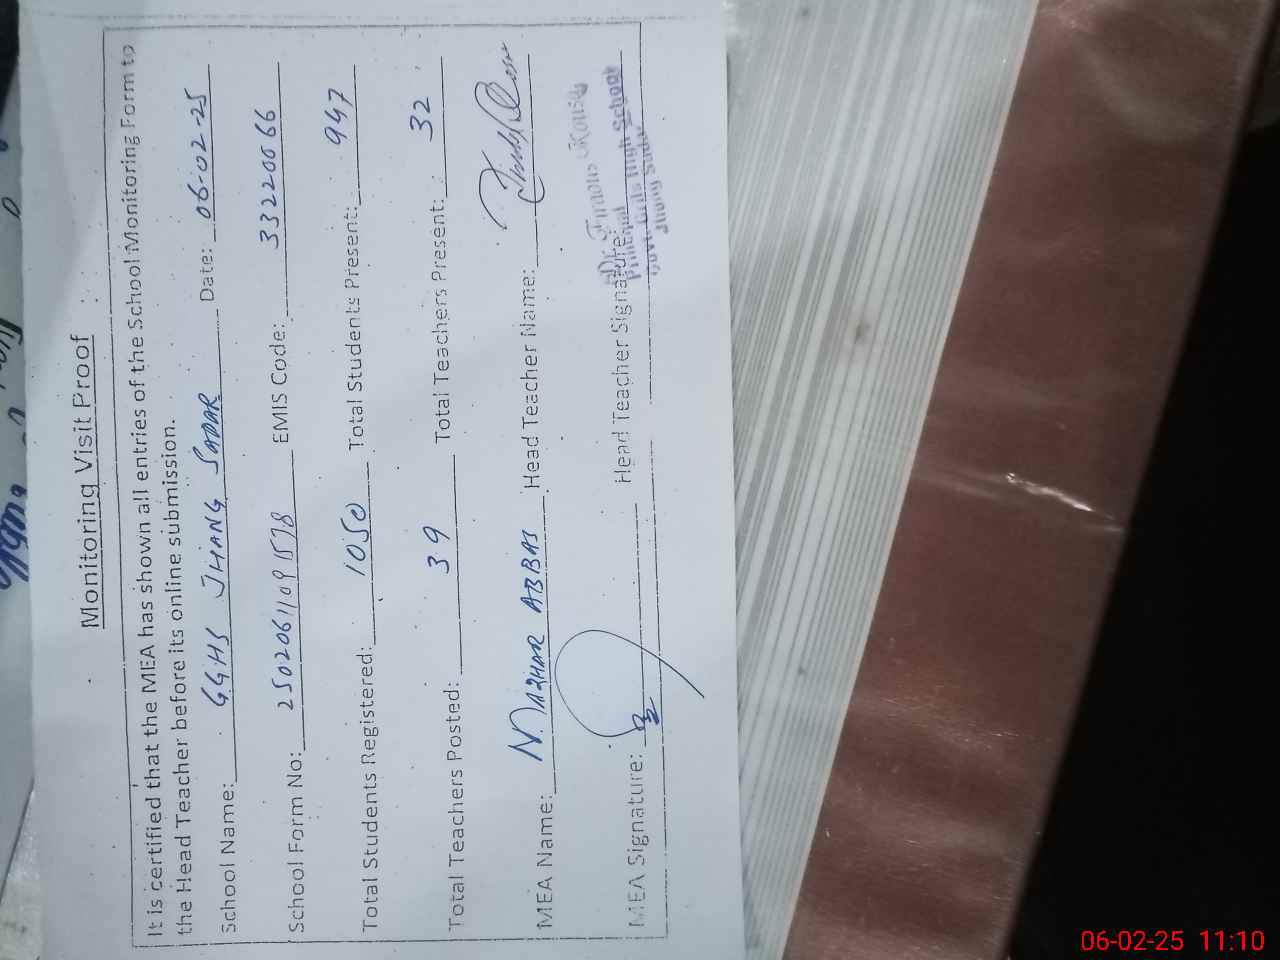 Monitoring Visit Proof
It is certified that the MEA has shown all entries of the School Monitoring Form to
the Head Teacher before its online submission.
School Name: GGHS JHANG SADAR Date: 06-02-25
School Form No: 25020611091578 EMIS Code: 33220066
Total Students Registered: 1050 Total Students Present: 947
Total Teachers Posted: 39 Total Teachers Present: 32
MEA Name: MAZHAR ABBAS Head Teacher Name:
MEA Signature: Head Teacher Signature:
Dr. Firdous Kousar
Principal
Govt. Girls High School
Jhang Sadar
06-02-25 11:10